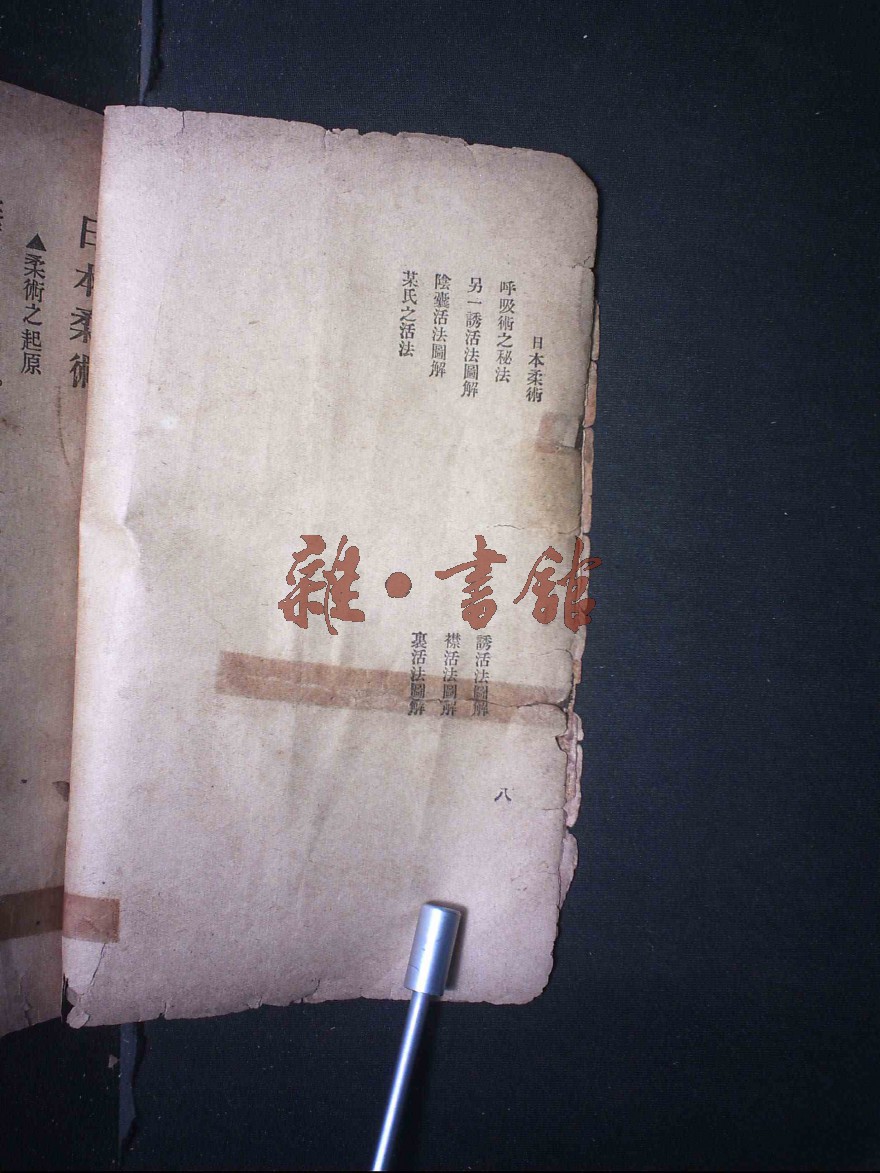 日本柔術
呼吸術之秘法
誘活法圖解
另一誘活法圖解
襟活法圖解
陰囊活法圖解
裏活法圖解
某氏之活法
八
雜·書館
日本柔術
▲柔術之起原